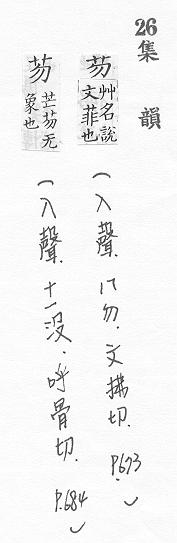 26
集韻
芴 艸名說文菲也 (入聲. 八勿. 文拂切. P.673)
芴 芒芴无象也 (入聲. 十一沒. 呼骨切. P.684)